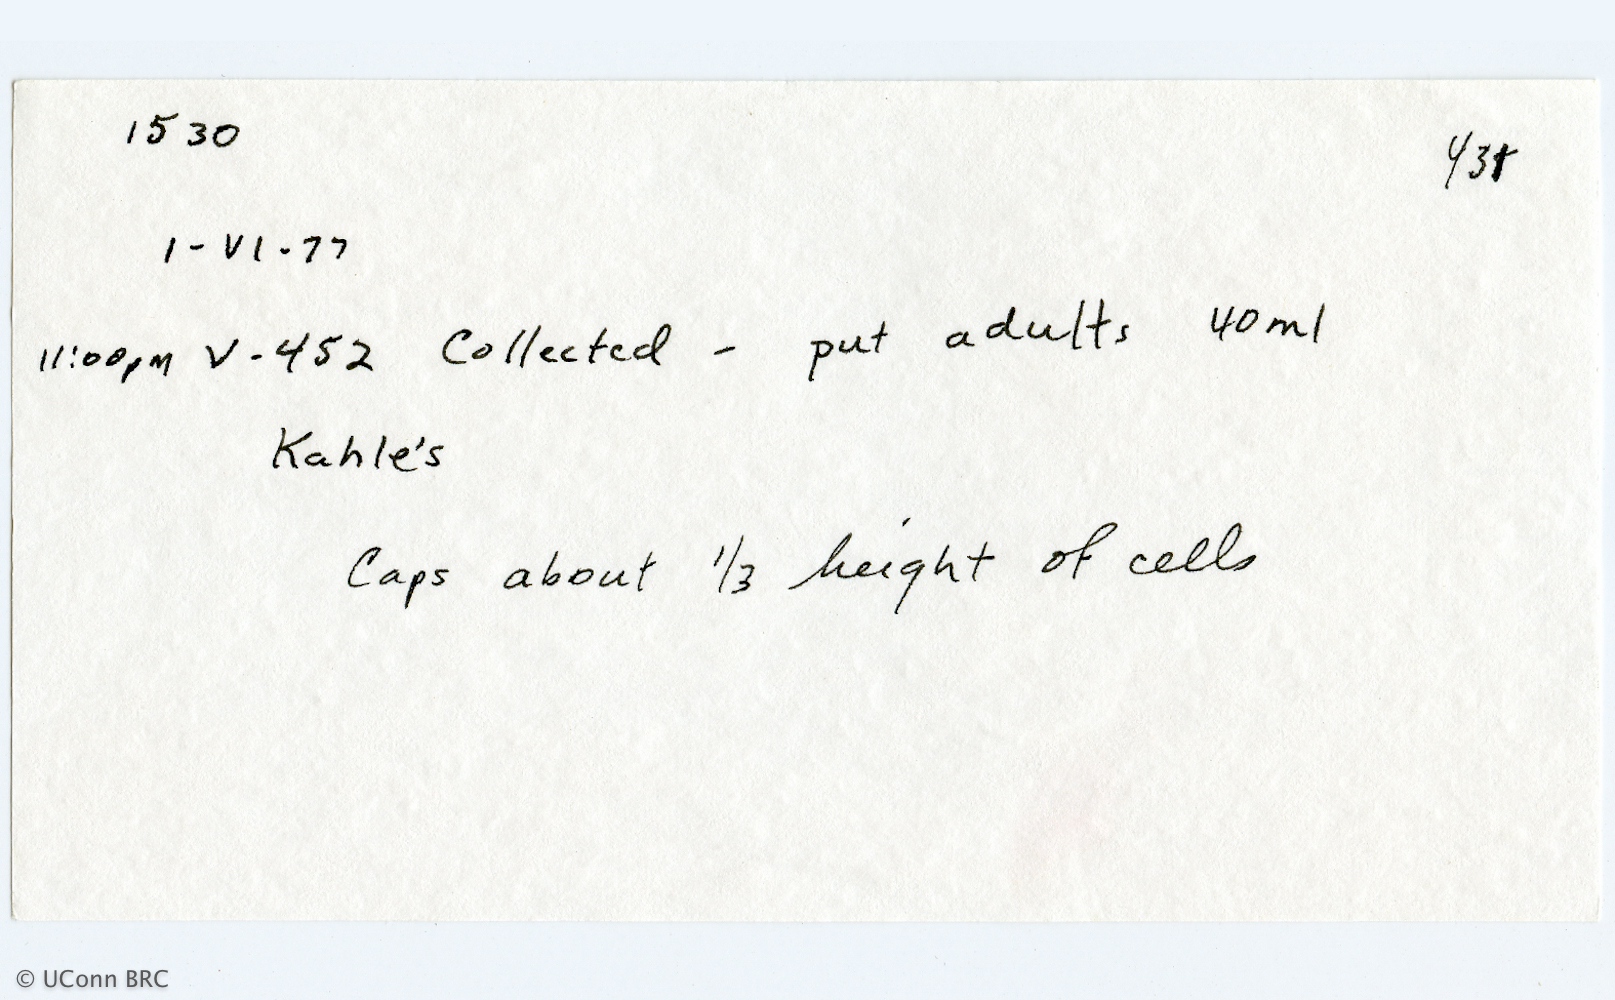 1530
1-VI-77
11:00pm V-452 Collected - put adults 40ml
Kahle's
Caps about 1/3 height of cells
© UConn BRC